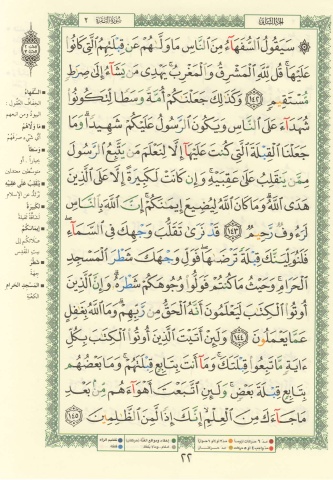 الجزء الثاني
سورة البقرة ٢
سَيَقُولُ ٱلسُّفَهَآءُ مِنَ ٱلنَّاسِ مَا وَلَّىٰهُمْ عَن قِبْلَتِهِمُ ٱلَّتِى كَانُوا۟
عَلَيْهَا ۚ قُل لِّلَّهِ ٱلْمَشْرِقُ وَٱلْمَغْرِبُ ۚ يَهْدِى مَن يَشَآءُ إِلَىٰ صِرَٰطٍ
مُّسْتَقِيمٍ ١٤٢ وَكَذَٰلِكَ جَعَلْنَٰكُمْ أُمَّةً وَسَطًا لِّتَكُونُوا۟
شُهَدَآءَ عَلَى ٱلنَّاسِ وَيَكُونَ ٱلرَّسُولُ عَلَيْكُمْ شَهِيدًا ۗ وَمَا
جَعَلْنَا ٱلْقِبْلَةَ ٱلَّتِى كُنتَ عَلَيْهَآ إِلَّا لِنَعْلَمَ مَن يَتَّبِعُ ٱلرَّسُولَ
مِمَّن يَنقَلِبُ عَلَىٰ عَقِبَيْهِ ۚ وَإِن كَانَتْ لَكَبِيرَةً إِلَّا عَلَى ٱلَّذِينَ
هَدَى ٱللَّهُ ۗ وَمَا كَانَ ٱللَّهُ لِيُضِيعَ إِيمَٰنَكُمْ ۚ إِنَّ ٱللَّهَ بِٱلنَّاسِ
لَرَءُوفٌ رَّحِيمٌ ١٤٣ قَدْ نَرَىٰ تَقَلُّبَ وَجْهِكَ فِى ٱلسَّمَآءِ ۖ
فَلَنُوَلِّيَنَّكَ قِبْلَةً تَرْضَىٰهَا ۚ فَوَلِّ وَجْهَكَ شَطْرَ ٱلْمَسْجِدِ
ٱلْحَرَامِ ۚ وَحَيْثُ مَا كُنتُمْ فَوَلُّوا۟ وُجُوهَكُمْ شَطْرَهُۥ ۗ وَإِنَّ ٱلَّذِينَ
أُوتُوا۟ ٱلْكِتَٰبَ لَيَعْلَمُونَ أَنَّهُ ٱلْحَقُّ مِن رَّبِّهِمْ ۗ وَمَا ٱللَّهُ بِغَٰفِلٍ
عَمَّا يَعْمَلُونَ ١٤٤ وَلَئِنْ أَتَيْتَ ٱلَّذِينَ أُوتُوا۟ ٱلْكِتَٰبَ بِكُلِّ
ءَايَةٍ مَّا تَبِعُوا۟ قِبْلَتَكَ ۚ وَمَآ أَنتَ بِتَابِعٍ قِبْلَتَهُمْ ۚ وَمَا بَعْضُهُم
بِتَابِعٍ قِبْلَةَ بَعْضٍ ۚ وَلَئِنِ ٱتَّبَعْتَ أَهْوَآءَهُم مِّنۢ بَعْدِ
مَا جَآءَكَ مِنَ ٱلْعِلْمِ ۙ إِنَّكَ إِذًا لَّمِنَ ٱلظَّٰلِمِينَ ١٤٥
السفهاء
ما ولاهم
وسطا
ينقلب على عقبيه
لكبيرة
إيمانكم
شطر
المسجد الحرام
الكعبة
٢٢